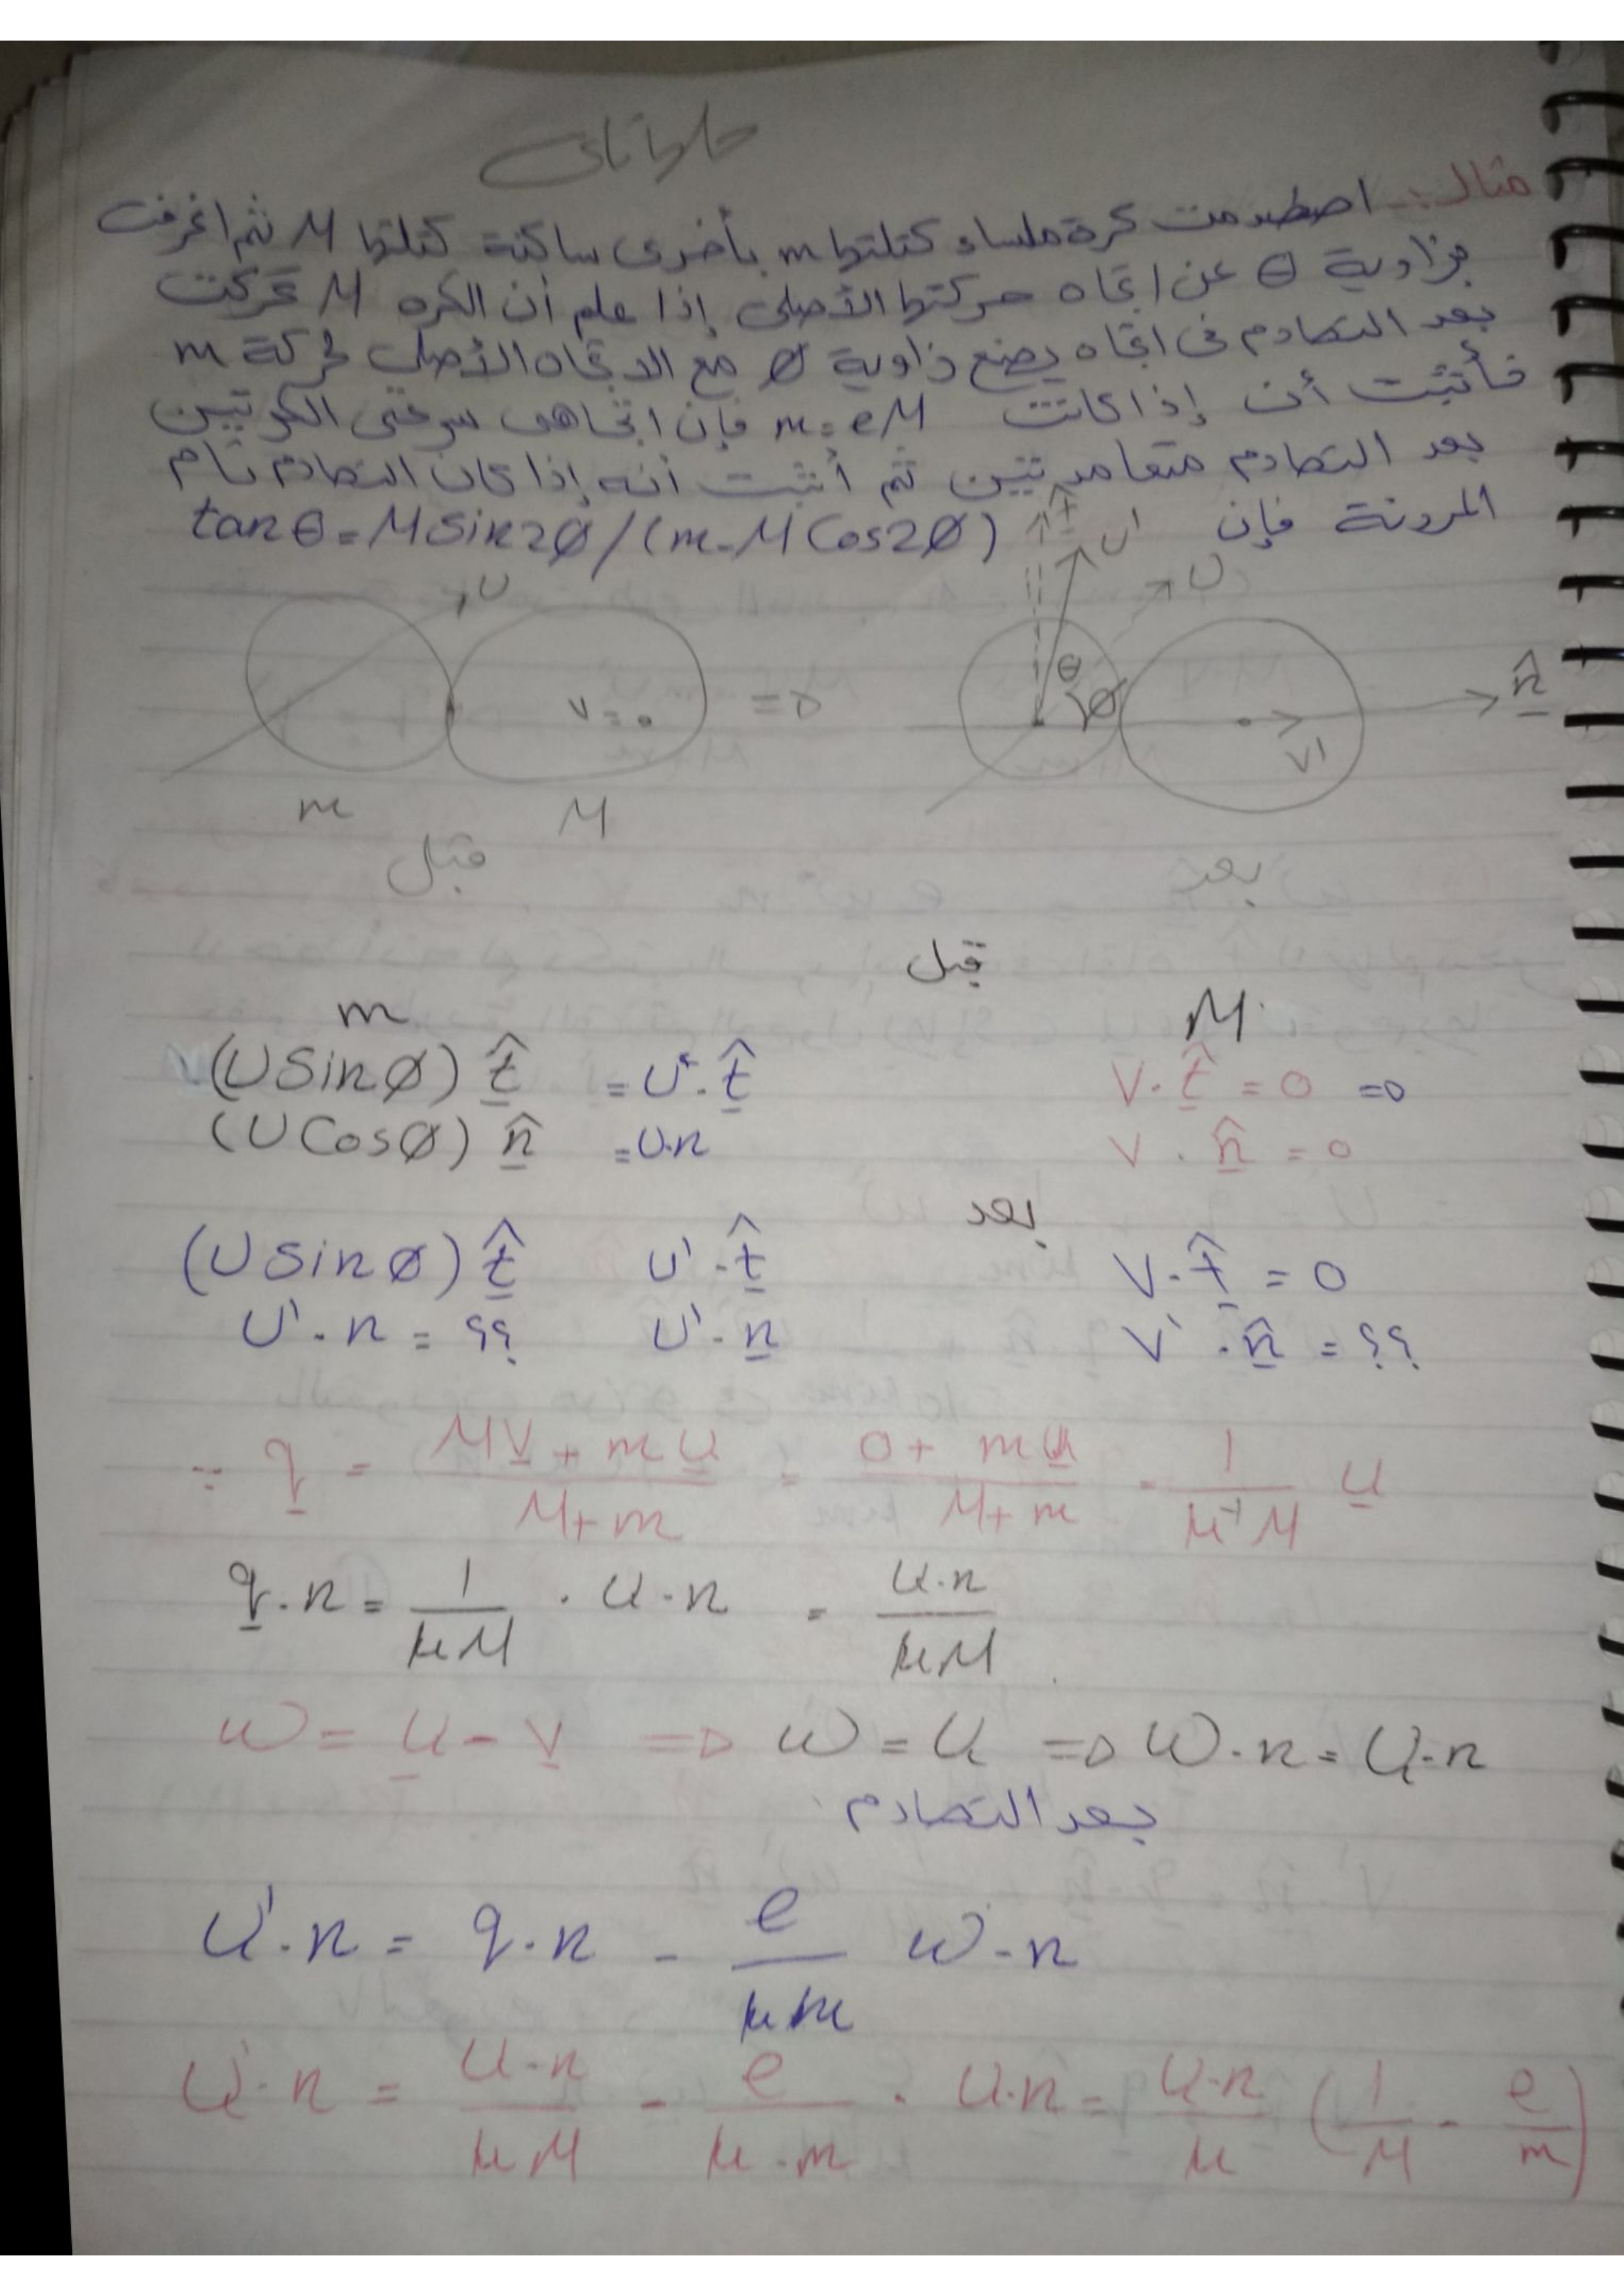 مثال:- اصطدمت كرة ملساء كتلتها m بأخرى ساكنة كتلتها M ثم انحرفت
بزاوية θ عن اتجاه حركتها الأصلى إذا علم أن الكره M تحركت
بعد التصادم فى اتجاه يصنع زاوية Ø مع الاتجاه الأصلى لحركة m
فأثبت أن إذا كانت m = eM فإن اتجاهى سرعتى الكرتين
بعد التصادم متعامدتين ثم أثبت أنه إذا كان التصادم تام
المرونة فإن tan θ = M Sin 2Ø / (m - M Cos 2Ø)
t̂ U' U
U θ Ø n̂
V = 0 ⇒ V'
m M
قبل بعد
قبل
m M
(U Sin Ø) t̂ = U · t̂ V · t̂ = 0 ⇒
(U Cos Ø) n̂ = U·n V · n̂ = 0
بعد
(U Sin Ø) t̂ U' · t̂ V · t̂ = 0
U' · n = ؟؟ U' · n V' · n̂ = ؟؟
∵ q = (MV + mU)/(M + m) = (0 + mU)/(M + m) = 1/(μM) U
q · n = 1/(μM) · U · n = U·n/(μM)
w = U - V ⇒ w = U ⇒ w · n = U · n
بعد التصادم
U' · n = q · n - e/(μm) w · n
U' · n = U·n/(μM) - e/(μ·m) · U·n = U·n/μ (1/M - e/m)